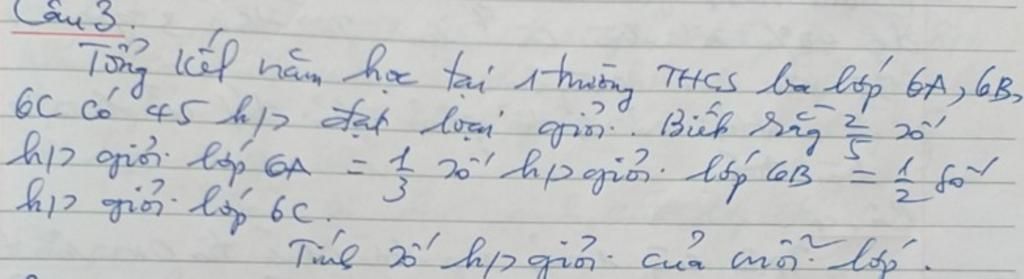 Câu 3.
Tổng kết năm học tại 1 trường THCS ba lớp 6A, 6B,
6C có 45 h/s đạt loại giỏi. Biết rằng 2/5 số
h/s giỏi lớp 6A = 1/3 số h/s giỏi lớp 6B = 1/2 số
h/s giỏi lớp 6C.
Tính số h/s giỏi của mỗi lớp.